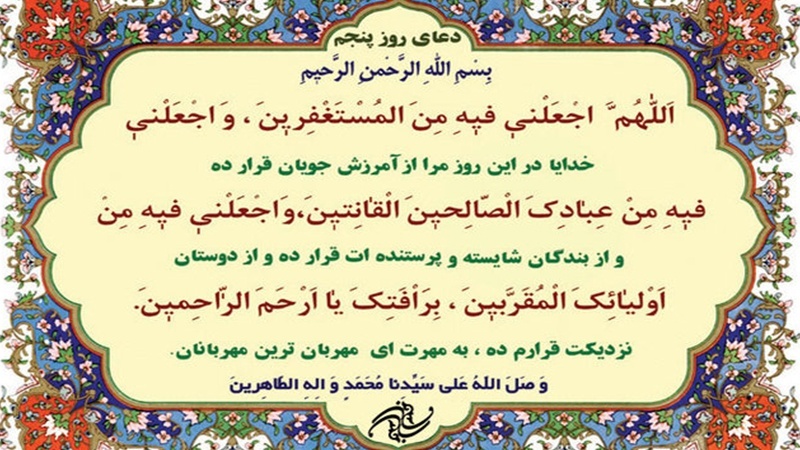 دعای روز پنجم
بِسْمِ اللهِ الرَّحْمنِ الرَّحيٖمِ
اَللّٰهُمَّ اجْعَلْني فيٖهِ مِنَ المُسْتَغْفِريٖنَ ، وَ اجْعَلْني
خدایا در این روز مرا از آمرزش جویان قرار ده
فيٖهِ مِنْ عِبٰادِكَ الْصّالِحيٖنَ الْقٰانِتيٖنَ،وَاجْعَلْني فيٖهِ مِنْ
و از بندگان شایسته و پرستنده ات قرار ده و از دوستان
اَوْلِيٰائِكَ الْمُقَرَّبيٖنَ ، بِرَاْفَتِكَ يٰا اَرْحَمَ الرّاحِميٖنَ.
نزدیکت قرارم ده ، به مهرت ای مهربان ترین مهربانان.
وَ صَلَ اللهُ عَلی سَیِّدنا مُحَمَدٍ وَ الِهِ الطّاهِرینَ